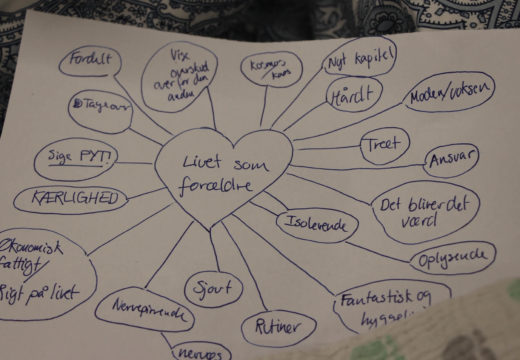 Fordelt
Vix
overskud
over for den
anden
Kosmos/
kaos
Nyt kapitel
Hårdt
Moden/voksen
Træt
Ansvar
Sige PYT!
KÆRLIGHED
Livet som
forældre
Det bliver det
værd
Isolerende
Oplysende
Økonomisk
fattigt/
Rigt på livet
Nervepirrende
nervøs
Sjovt
Rutiner
Fantastisk og